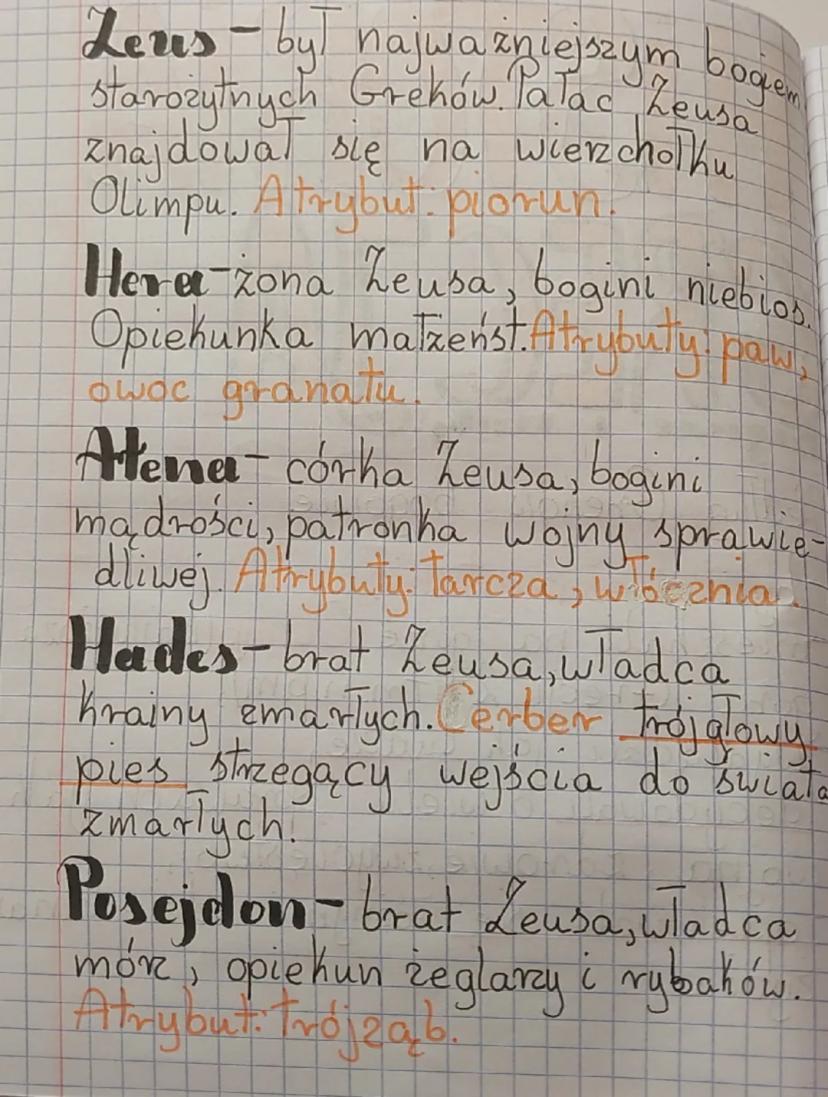 Zeus - był najważniejszym bogiem
starożytnych Greków. Pałac Zeusa
znajdował się na wierzchołku
Olimpu. Atrybut: piorun.
Hera - żona Zeusa, bogini niebios.
Opiekunka małżeńst. Atrybuty: paw,
owoc granatu.
Atena - córka Zeusa, bogini
mądrości, patronka wojny sprawie-
dliwej. Atrybuty: tarcza, włócznia.
Hades - brat Zeusa, władca
krainy zmarłych. Cerber trójgłowy
pies strzegący wejścia do świata
zmarłych.
Posejdon - brat Zeusa, władca
mórz, opiekun żeglarzy i rybaków.
Atrybut: trójząb.